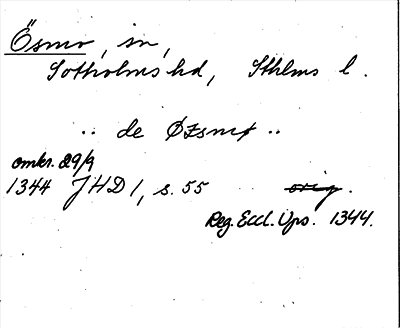 Ösmo, sn,
Sotholms hd, Sthlms l.
.. de Øzsmø ..
omkr. 29/9
1344 JHD 1, s. 55 orig.
Reg. Eccl. Ups. 1344.